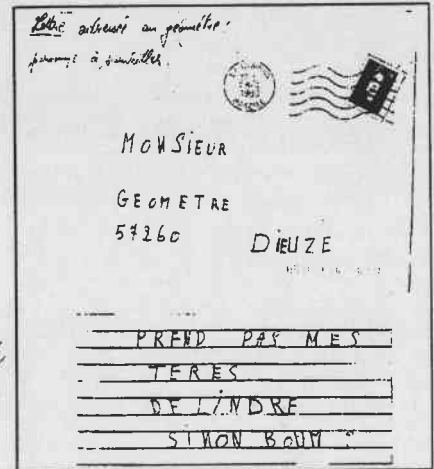 Lettre adressée au géomètre
MONSIEUR
GEOMETRE
57260
DIEUZE
PREND PAS MES
TERES
DE LINDRE
SINON BOUM